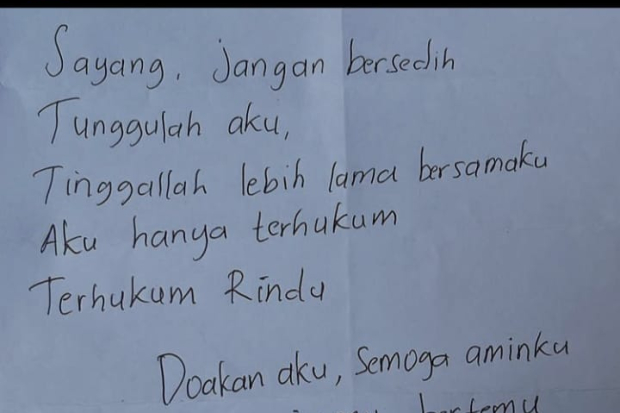 Sayang, jangan bersedih
Tunggulah aku,
Tinggallah lebih lama bersamaku
Aku hanya terhukum
Terhukum Rindu
Doakan aku, Semoga aminku
bertemu